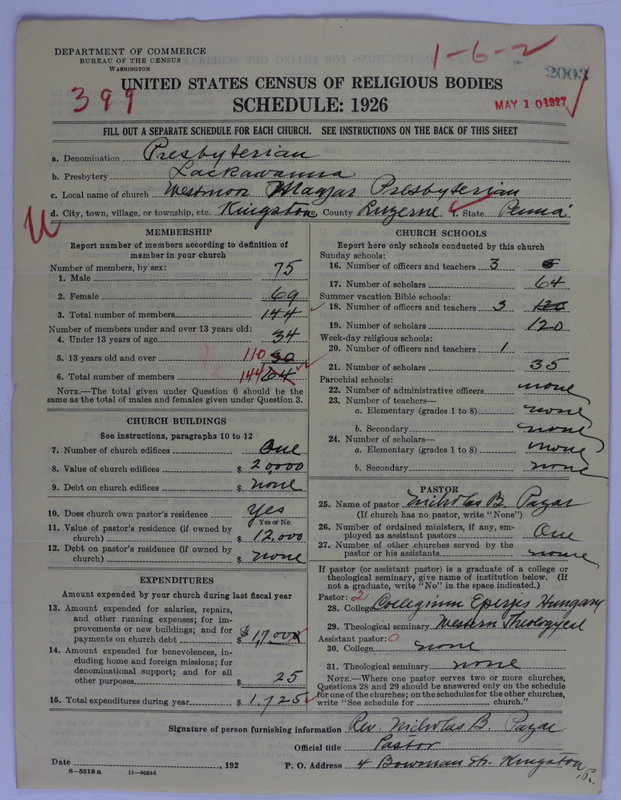 DEPARTMENT OF COMMERCE
BUREAU OF THE CENSUS
WASHINGTON
1-6-2
2003
399
UNITED STATES CENSUS OF RELIGIOUS BODIES
SCHEDULE: 1926
MAY 10 1927
FILL OUT A SEPARATE SCHEDULE FOR EACH CHURCH. SEE INSTRUCTIONS ON THE BACK OF THIS SHEET
a. Denomination Presbyterian
b. Presbytery Lackawanna
c. Local name of church Westmoor Magyar Presbyterian
d. City, town, village, or township, etc. Kingston County Luzerne f. State Penna.
MEMBERSHIP
Report number of members according to definition of
member in your church
Number of members, by sex:
1. Male 75
2. Female 69
3. Total number of members 144
Number of members under and over 13 years old:
4. Under 13 years of age 34
5. 13 years old and over 110 30
6. Total number of members 144 64
NOTE.—The total given under Question 6 should be the
same as the total of males and females given under Question 3.
CHURCH BUILDINGS
See instructions, paragraphs 10 to 12
7. Number of church edifices One
8. Value of church edifices $ 20,000
9. Debt on church edifices $ none
10. Does church own pastor's residence? Yes
Yes or No
11. Value of pastor's residence (if owned by
church) $ 12,000
12. Debt on pastor's residence (if owned by
church) $ none
EXPENDITURES
Amount expended by your church during last fiscal year
13. Amount expended for salaries, repairs,
and other running expenses; for im-
provements or new buildings; and for
payments on church debt $ 1,700
14. Amount expended for benevolences, in-
cluding home and foreign missions; for
denominational support; and for all
other purposes $ 25
15. Total expenditures during year $ 1,725
CHURCH SCHOOLS
Report here only schools conducted by this church
Sunday schools:
16. Number of officers and teachers 3
17. Number of scholars 64
Summer vacation Bible schools:
18. Number of officers and teachers 3 120
19. Number of scholars 120
Week-day religious schools:
20. Number of officers and teachers 1
21. Number of scholars 35
Parochial schools:
22. Number of administrative officers none
23. Number of teachers—
a. Elementary (grades 1 to 8) none
b. Secondary none
24. Number of scholars—
a. Elementary (grades 1 to 8) none
b. Secondary none
PASTOR
25. Name of pastor Nicholas B.
(If church has no pastor, write "None")
26. Number of ordained ministers, if any, em-
ployed as assistant pastors One
27. Number of other churches served by the
pastor or his assistants none
If pastor (or assistant pastor) is a graduate of a college or
theological seminary, give name of institution below. (If
not a graduate, write "No" in the space indicated.)
Pastor: 2
28. College Collegium Eperjes Hungary
29. Theological seminary Western Theological
Assistant pastor: 0
30. College none
31. Theological seminary none
NOTE.—Where one pastor serves two or more churches,
Questions 28 and 29 should be answered only on the schedule
for one of the churches; on the schedules for the other churches
write "See schedule for church."
Signature of person furnishing information Rev. Nicholas B.
Official title Pastor
Date , 192
P. O. Address 4 Bowman St. Kingston, Pa.
8—5518a